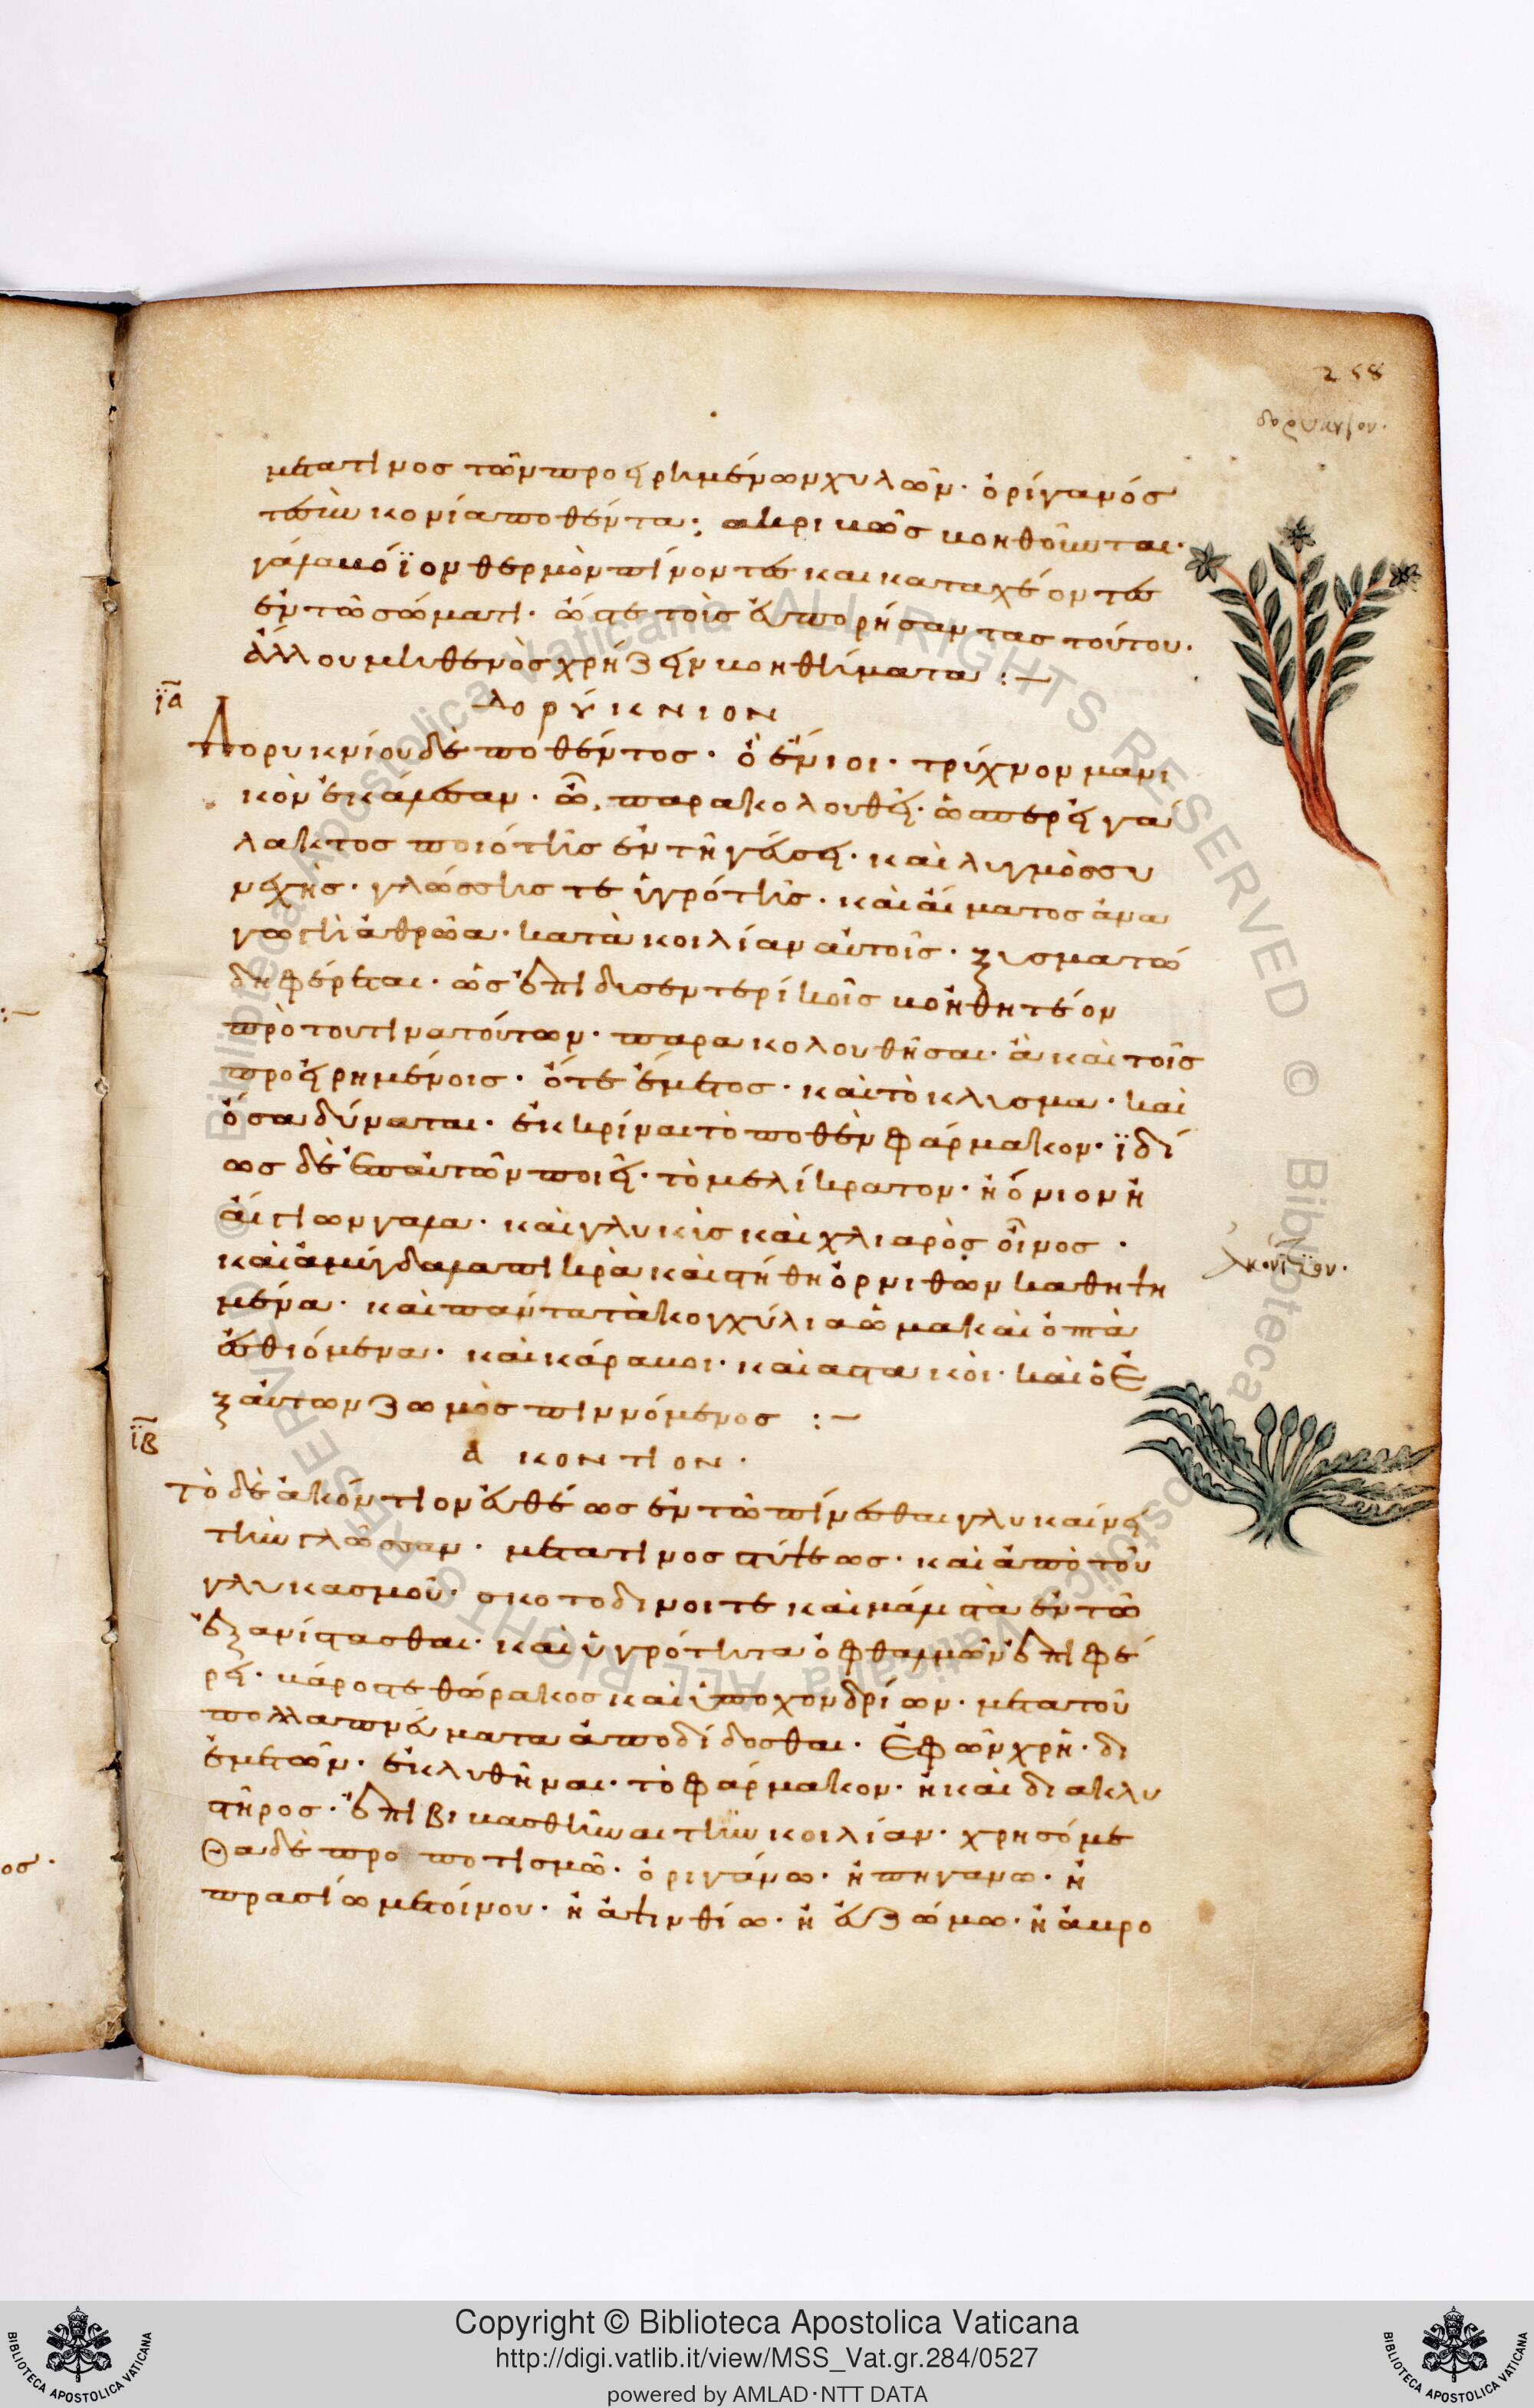 258
μετατινοσ τῶν προειρημένων χυλῶν· ὀρίγανόσ
τὼν κονία ποθέντα: ακρικῶσ κοηθοῦνται·
γάλα κόϊον θερμὸν πίνοντα και καταχέοντα
ἐν τῶ σώματι· ὥστε τοὶσ ἐυπορήσαντασ τούτου·
ἄλλου μηθενὸσ χρήζειν κοηθήματα :—
ϊα
ΔΟΡΥΚΝΙΟΝ
Δορυκνίου δὲ ποθέντοσ· ὃ ἔνιοι· τρύχνον μανι
κὸν ἐκάλεσαν· ὧ, παρακολουθεῖ· ὡσπερεὶ γά
λακτοσ ποιότησ ἐν τῆ γεύσει· καὶ λυγμὸσ συ
νεχὴσ· γλώσσησ τε ὑγρότησ· καὶ ἅιματοσ ἀνα
γωγὴ ἀθρῶα· κατὰ κοιλίαν ἀυτοῖσ· ξυσματώ
δη φέρεται· ὡσ ἐπὶ δισεντερίκοῖσ κοἠθητέον
πρὸ του τινα τούτων· παρακολουθῆσαι· ἃ καὶ τοῖσ
προειρημένοισ· ὅτε ἔμετοσ· καὶ τὸ κλυσμα· καὶ
ὅσα δύναται· ἐκκρίναι τὸ ποθὲν φάρμακον· ϊδί
ωσ δὲ ἐπ ἀυτῶν ποιεῖ· τὸ μελίκρατον· ἢ ὄνιον ἢ
ἀίγιων γαλα· καὶ γλυκὶσ καὶ χλιαρὸσ ὄινοσ·
καὶ ἀμύγδαλα πικρὰ καὶ στήθη ὀρνιθων καθηψη
μένα· καὶ παντα τὰ κογχύλια ὠμα καὶ ὀπτὰ
ἐσθιόμενα· καὶ κάραβοι· καὶ αστακὸι· καὶ ὁ ἐ
ξ ἀυτων ζωμὸσ πιννόμενοσ :—
ϊβ
ΑΚΟΝΤΙΟΝ·
τὸ δὲ ἀκόντιον ἐυθέωσ ἐν τῶ πίνεσθαι γλυκαίνει
τὴν γλῶσσαν· μετατινοσ στύψεωσ· καὶ ἀπὸ τοῦ
γλυκασμοῦ· σκοτοδινοι τε καὶ μάλιστα ἐν τῶ
ἐξανίστασθαι· καὶ ὑγρότητα ὀφθαλμῶν ἐπιφέ
ρει· βάροστε θώρακοσ καὶ ὑποχονδρίων· μετα τοῦ
πολλα πνεύματα ἀποδίδοσθαι· ἐφ ὧν χρὴ· δι
ἐμετῶν· ἐκλυθῆναι· τὸ φάρμακον· ἢ καὶ διακλυ
στῆροσ· ἐπιβιβασθῆναι τὴν κοιλίαν· χρησόμε
θα δὲ προποτισμῶ· ὀριγάνω· ἢ πηγανω· ἢ
πρασίω μετ οίνου· ἢ ἀψινθίω· ἢ ἐυζώμω· ἢ ἀβρο
ἀκονίτϊον·
Copyright © Biblioteca Apostolica Vaticana
http://digi.vatlib.it/view/MSS_Vat.gr.284/0527
powered by AMLAD·NTT DATA
BIBLIOTECA APOSTOLICA VATICANA
BIBLIOTECA APOSTOLICA VATICANA
© Biblioteca Apostolica Vaticana ALL RIGHTS RESERVED
© Biblioteca Apostolica Vaticana ALL RIGHTS RESERVED